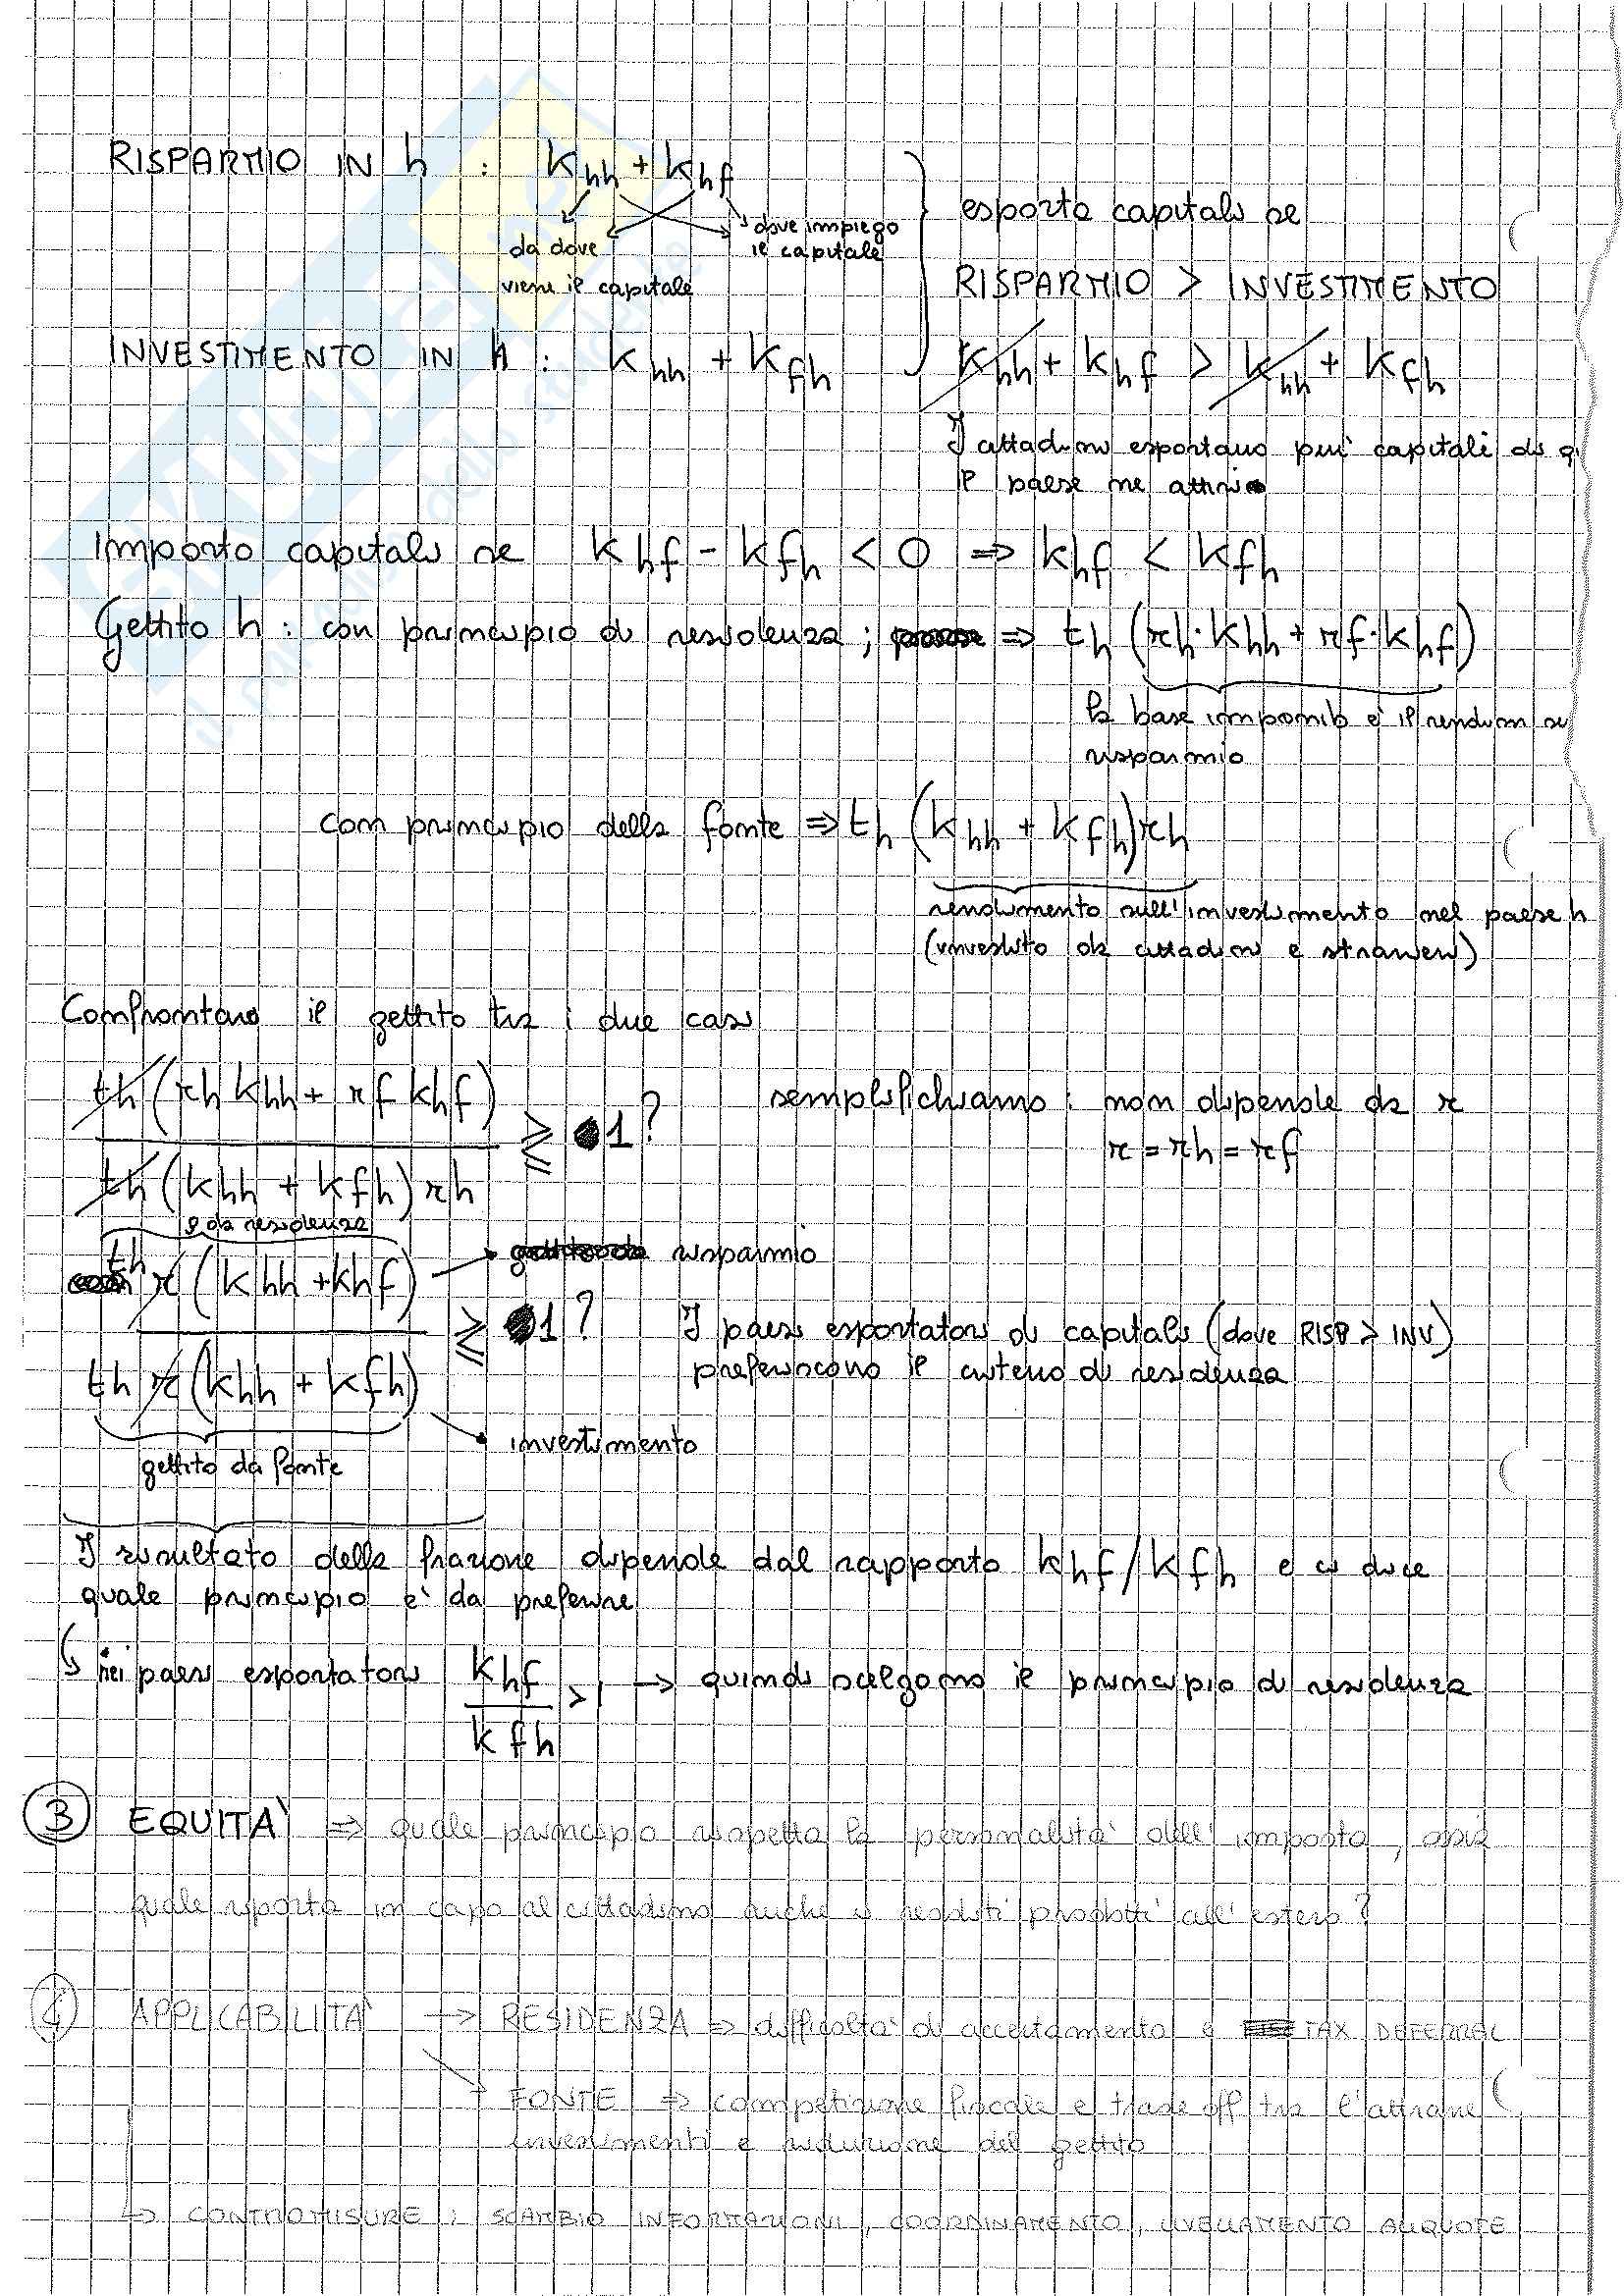 RISPARMIO IN h : Khh + Khf
da dove
viene il capitale
dove impiego
il capitale
esporto capitali se
RISPARMIO > INVESTIMENTO
INVESTIMENTO IN h : Khh + Kfh
Khh + Khf > Khh + Kfh
I cittadini esportano più capitali di q
il paese ne attrae
Importo capitali se Khf - Kfh < 0 => Khf < Kfh
Gettito h : con principio di residenza ; => th (rh · Khh + rf · Khf)
la base imponib è il rendim su
risparmio
con principio della fonte => th (Khh + Kfh) rh
rendimento sull'investimento nel paese h
(investito da cittadini e stranieri)
Confrontano il gettito tra i due casi
th (rh Khh + rf Khf)
⋛ 1 ?
th (Khh + Kfh) rh
semplifichiamo : non dipende da r
r = rh = rf
g da residenza
th r (Khh + Khf)
risparmio
⋛ 1 ?
th r (Khh + Kfh)
gettito da fonte
investimento
I paesi esportatori di capitali (dove RISP > INV)
preferiscono il criterio di residenza
Il risultato della frazione dipende dal rapporto Khf/Kfh e ci dice
quale principio e' da preferire
nei paesi esportatori Khf / Kfh > 1 → quindi scelgono il principio di residenza
3 EQUITA' => quale principio rispetta la personalita' dell'imposta, ossia
quale riporta in capo al cittadino anche i redditi prodotti all'estero ?
4 APPLICABILITA' → RESIDENZA => difficolta' di accertamento e TAX DEFERRAL
FONTE => competizione fiscale e trade off tra l'attrarre
investimenti e riduzione del gettito
→ CONTROMISURE : SCAMBIO INFORMAZIONI, COORDINAMENTO, LIVELLAMENTO ALIQUOTE